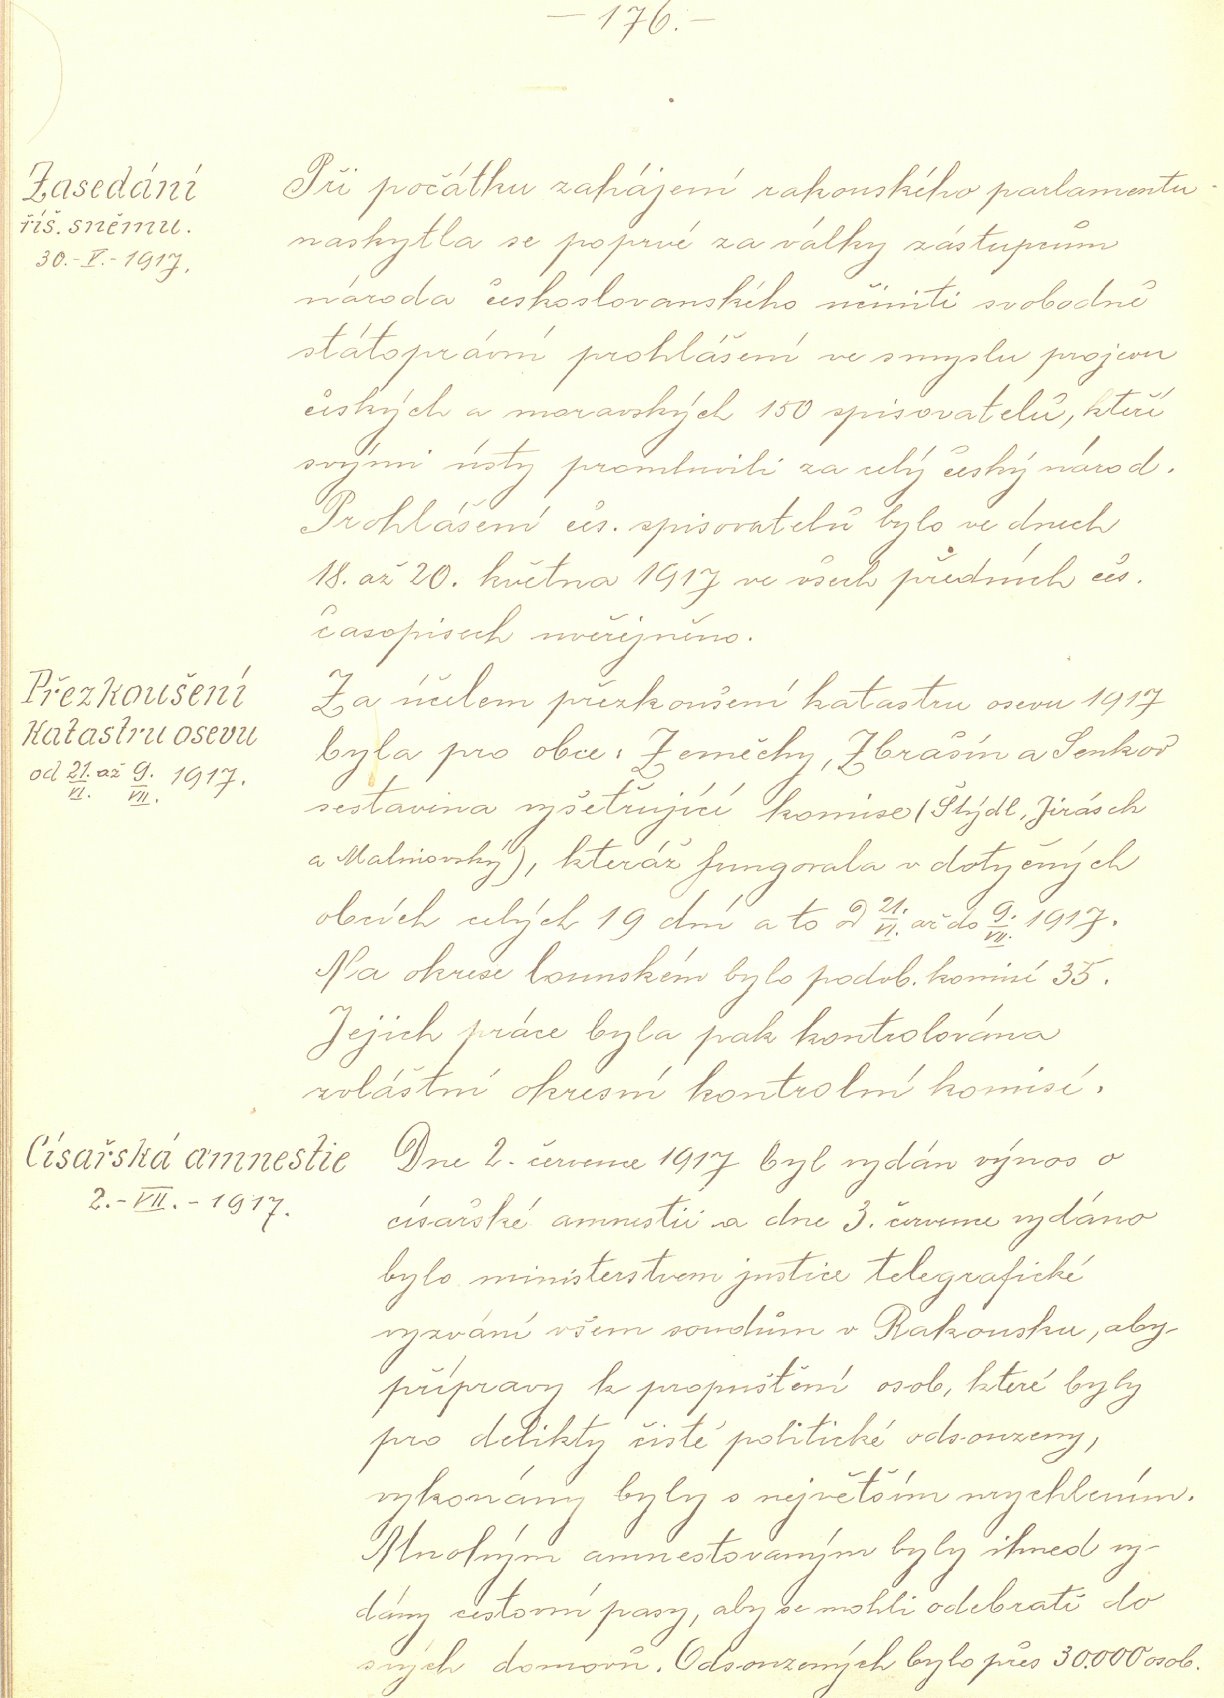 — 176. —
Zasedání
říš. sněmu.
30.-V.-1917.
Při počátku zahájení rakouského parlamentu
naskytla se poprvé za války zástupcům
národa československého učiniti svobodně
státoprávní prohlášení ve smyslu projevu
českých a moravských 150 spisovatelů, kteří
svými ústy promluvili za celý český národ.
Prohlášení čes. spisovatelů bylo ve dnech
18. až 20. května 1917 ve všech předních čes.
časopisech uveřejněno.
Přezkoušení
katastru osevu
od 21./VI. až 9./VII. 1917.
Za účelem přezkoušení katastru osevu 1917
byla pro obce: Zeměchy, Zbrašín a Senkov
sestavena vyšetřující komise (Štýdl, Jirásek
a Malinovský), kteráž fungovala v dotyčných
obcích celých 19 dní a to od 21./VI. až do 9./VII. 1917.
Na okrese lounském bylo podob. komisí 35.
Jejich práce byla pak kontrolována
zvláštní okresní kontrolní komisí.
Císařská amnestie
2.-VII.-1917.
Dne 2. července 1917 byl vydán výnos o
císařské amnestii a dne 3. července vydáno
bylo ministerstvem justice telegrafické
vyzvání všem soudům v Rakousku, aby
přípravy k propuštění osob, které byly
pro delikty čistě politické odsouzeny,
vykonány byly s největším urychlením.
Mnohým amnestovaným byly ihned vy-
dány cestovní pasy, aby se mohli odebrati do
svých domovů. Odsouzených bylo přes 30.000 osob.